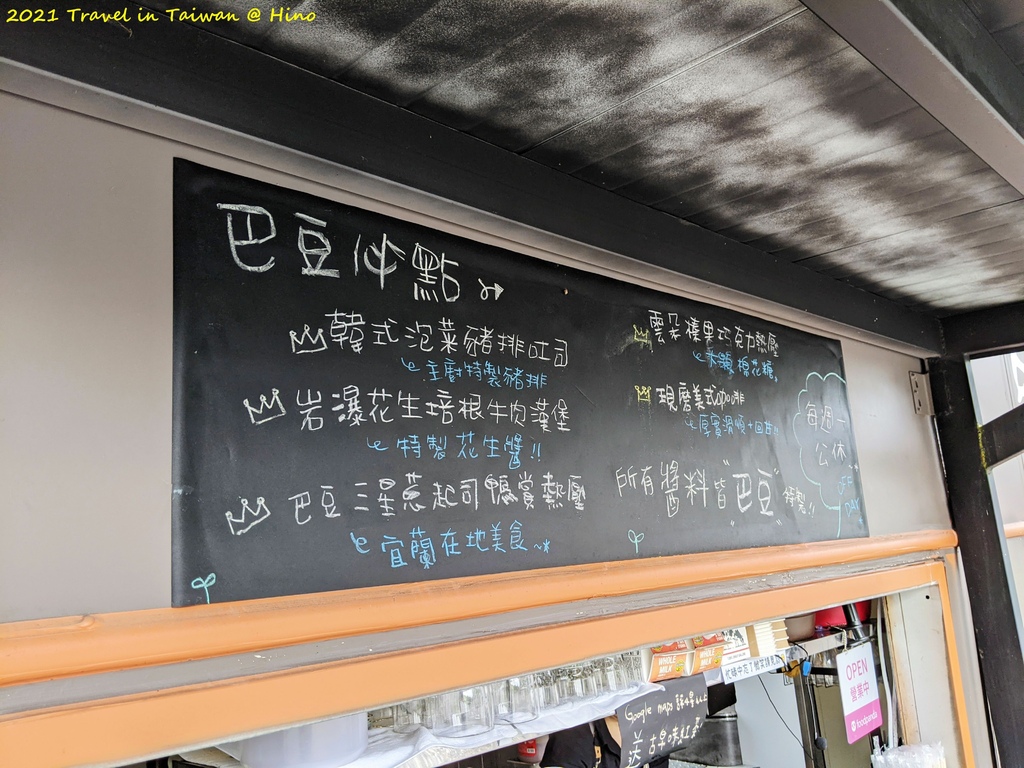 2021 Travel in Taiwan @ Hino
巴豆必點
韓式泡菜豬排吐司
主廚特製豬排
岩瀑花生培根牛肉漢堡
特製花生醬!!
巴豆三星蔥起司鴨賞熱壓
宜蘭在地美食~*
雲朵榛果巧克力熱壓
棉花糖。
現磨美式
厚實滑順+回甘!!
所有醬料皆"巴豆"特製!!
每週一
公休
OFF
DAY
WHOLE MILK
WHOLE MILK
OPEN
營業中
foodpanda
Google maps
送古早味紅茶